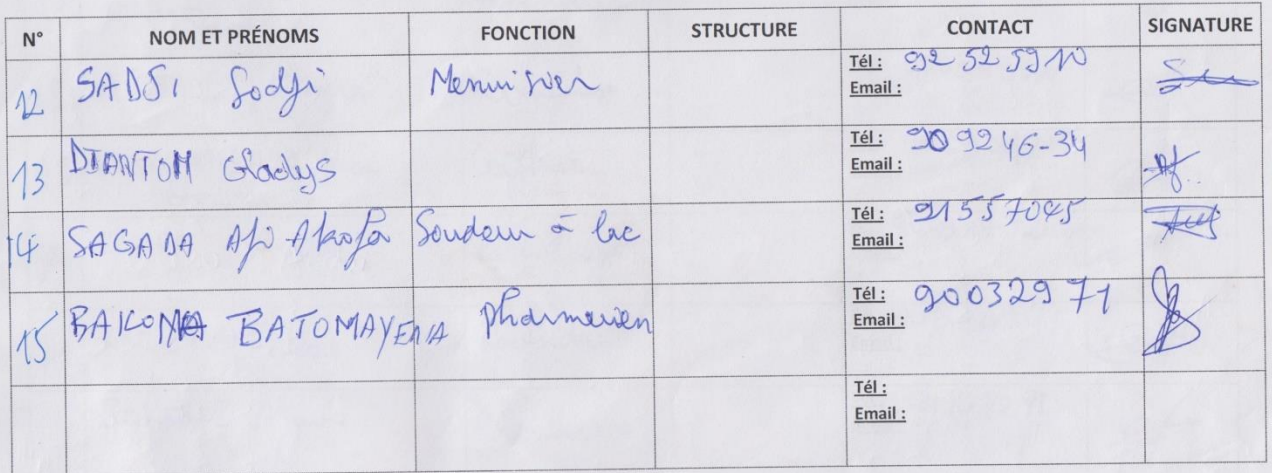 N° NOM ET PRÉNOMS FONCTION STRUCTURE CONTACT SIGNATURE
12 SADJI Sodji Menuisier Tél : 92 52 59 10
Email :
13 DJANTOM Gladys Tél : 90 92 46-34
Email :
14 SAGADA Afi Akofa Soudeur à lac Tél : 91557045
Email :
15 BAKOMA BATOMAYENA Pharmacien Tél : 90032971
Email :
Tél :
Email :